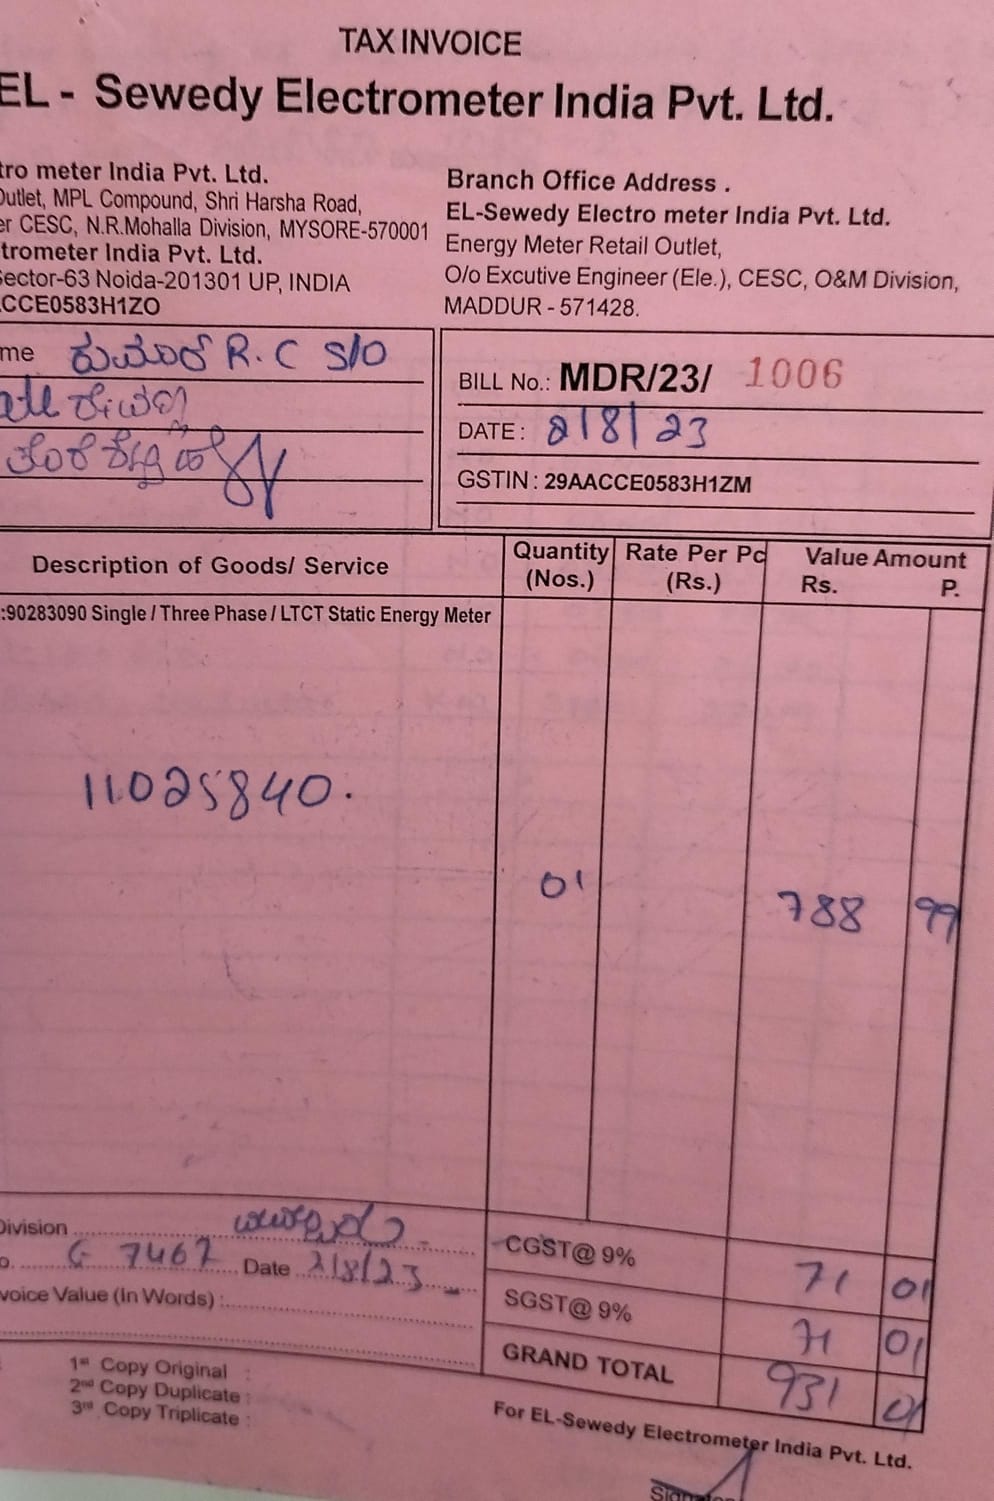 TAX INVOICE
EL - Sewedy Electrometer India Pvt. Ltd.
tro meter India Pvt. Ltd.
Outlet, MPL Compound, Shri Harsha Road,
er CESC, N.R.Mohalla Division, MYSORE-570001
trometer India Pvt. Ltd.
Sector-63 Noida-201301 UP, INDIA
CCE0583H1ZO
Branch Office Address .
EL-Sewedy Electro meter India Pvt. Ltd.
Energy Meter Retail Outlet,
O/o Excutive Engineer (Ele.), CESC, O&M Division,
MADDUR - 571428.
me ಕುಮಾರ್ R.C S/O
BILL No.: MDR/23/ 1006
DATE : 2/8/23
GSTIN : 29AACCE0583H1ZM
Description of Goods/ Service Quantity (Nos.) Rate Per Pc (Rs.) Value Amount Rs. P.
:90283090 Single / Three Phase / LTCT Static Energy Meter
11025840.
01 788 99
Division
CGST@ 9% 71 01
o. G 7467 Date 2/8/23
SGST@ 9% 71 01
voice Value (In Words) :
GRAND TOTAL 931 01
1st Copy Original :
2nd Copy Duplicate :
3rd Copy Triplicate :
For EL-Sewedy Electrometer India Pvt. Ltd.